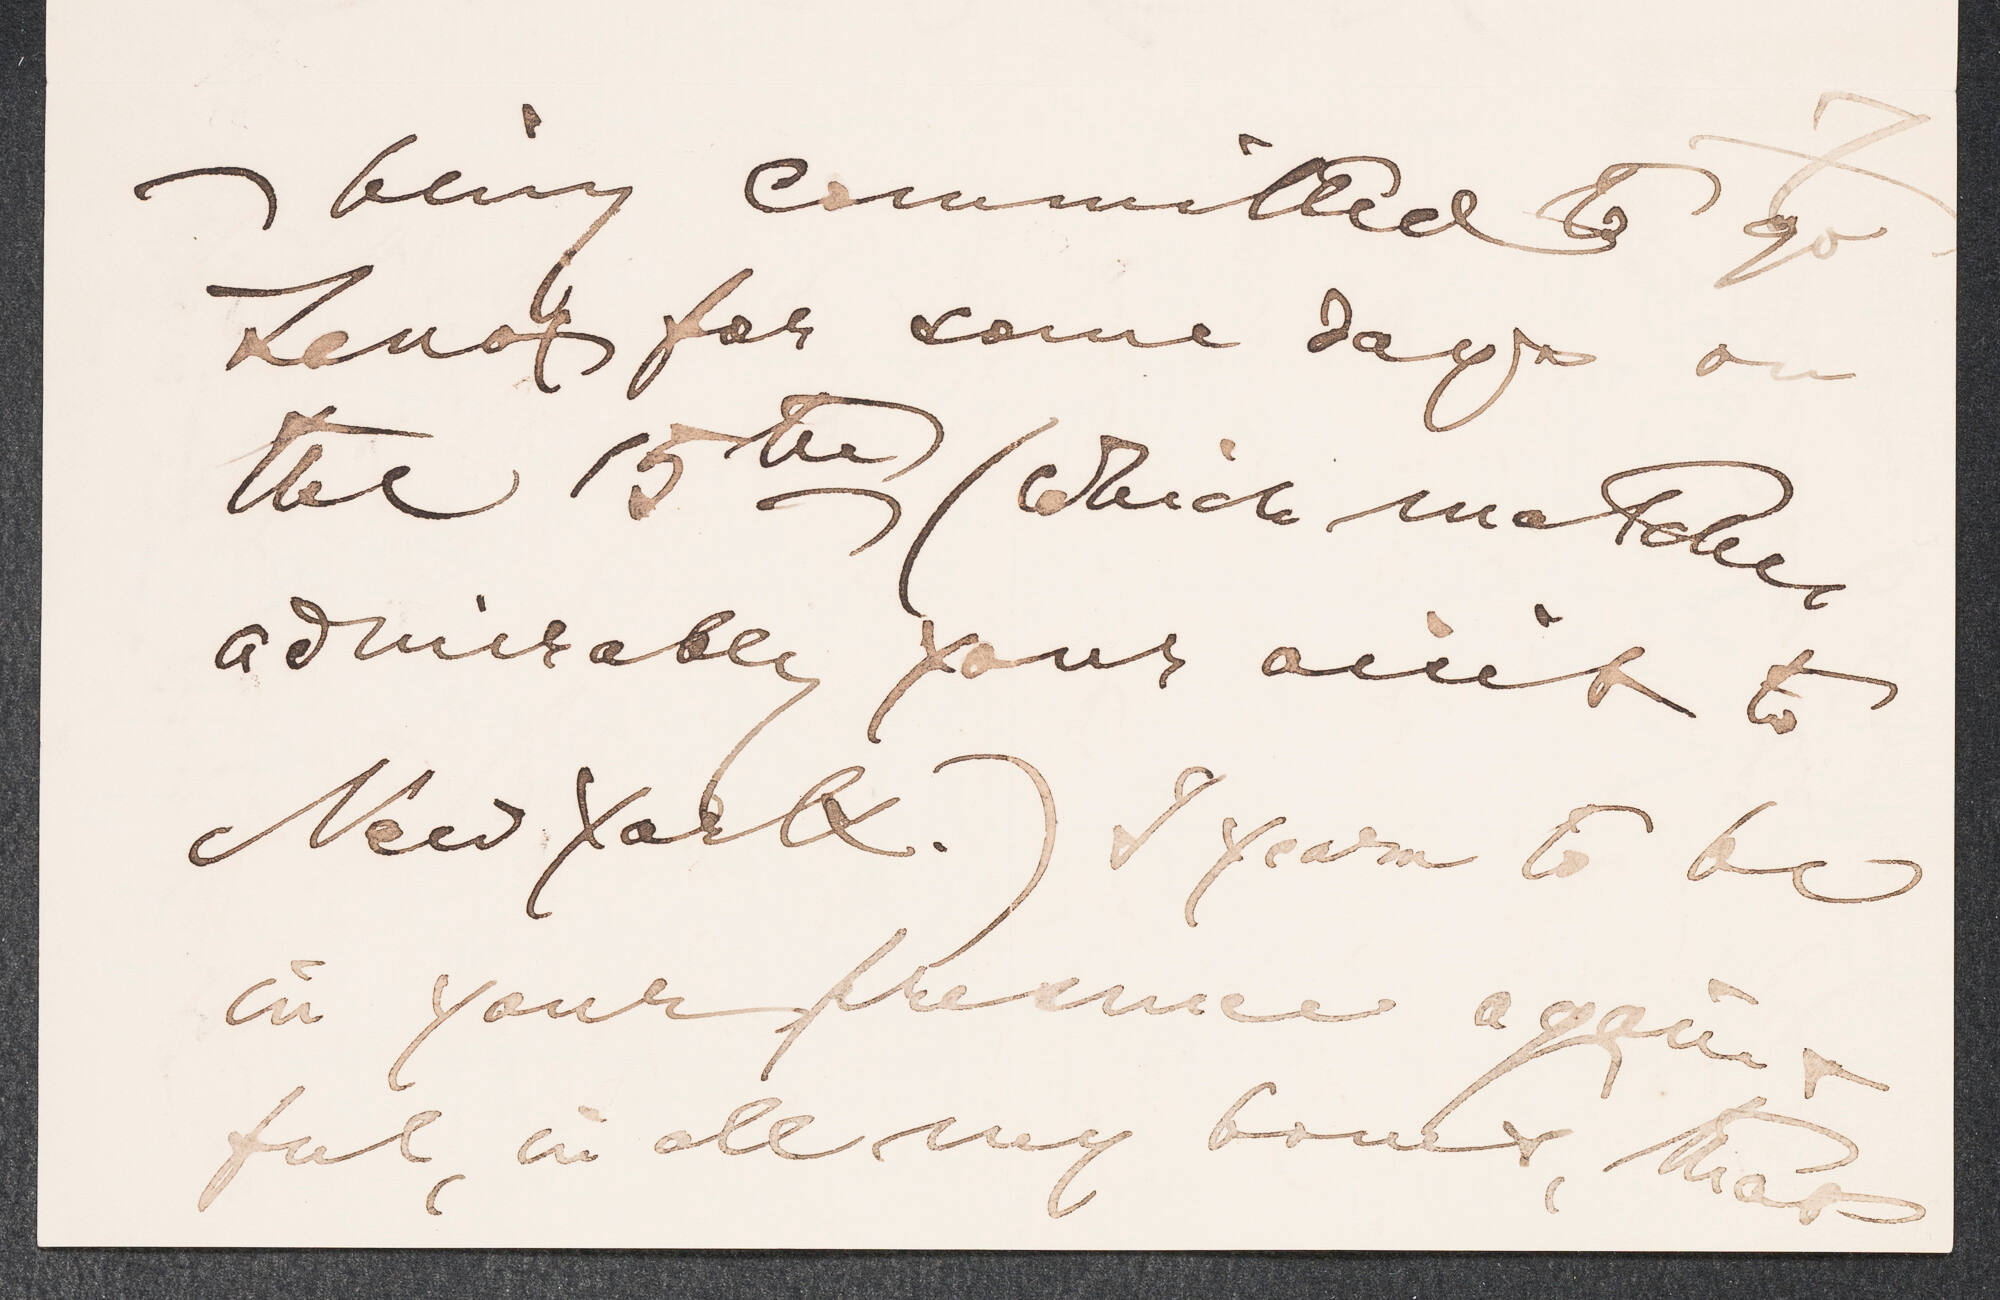 — being committed to go to
Lenox for some days on
the 15th — (which matches
admirably your visit to
New York.) I yearn to be
in your presence again &
ful, in all my bones, that